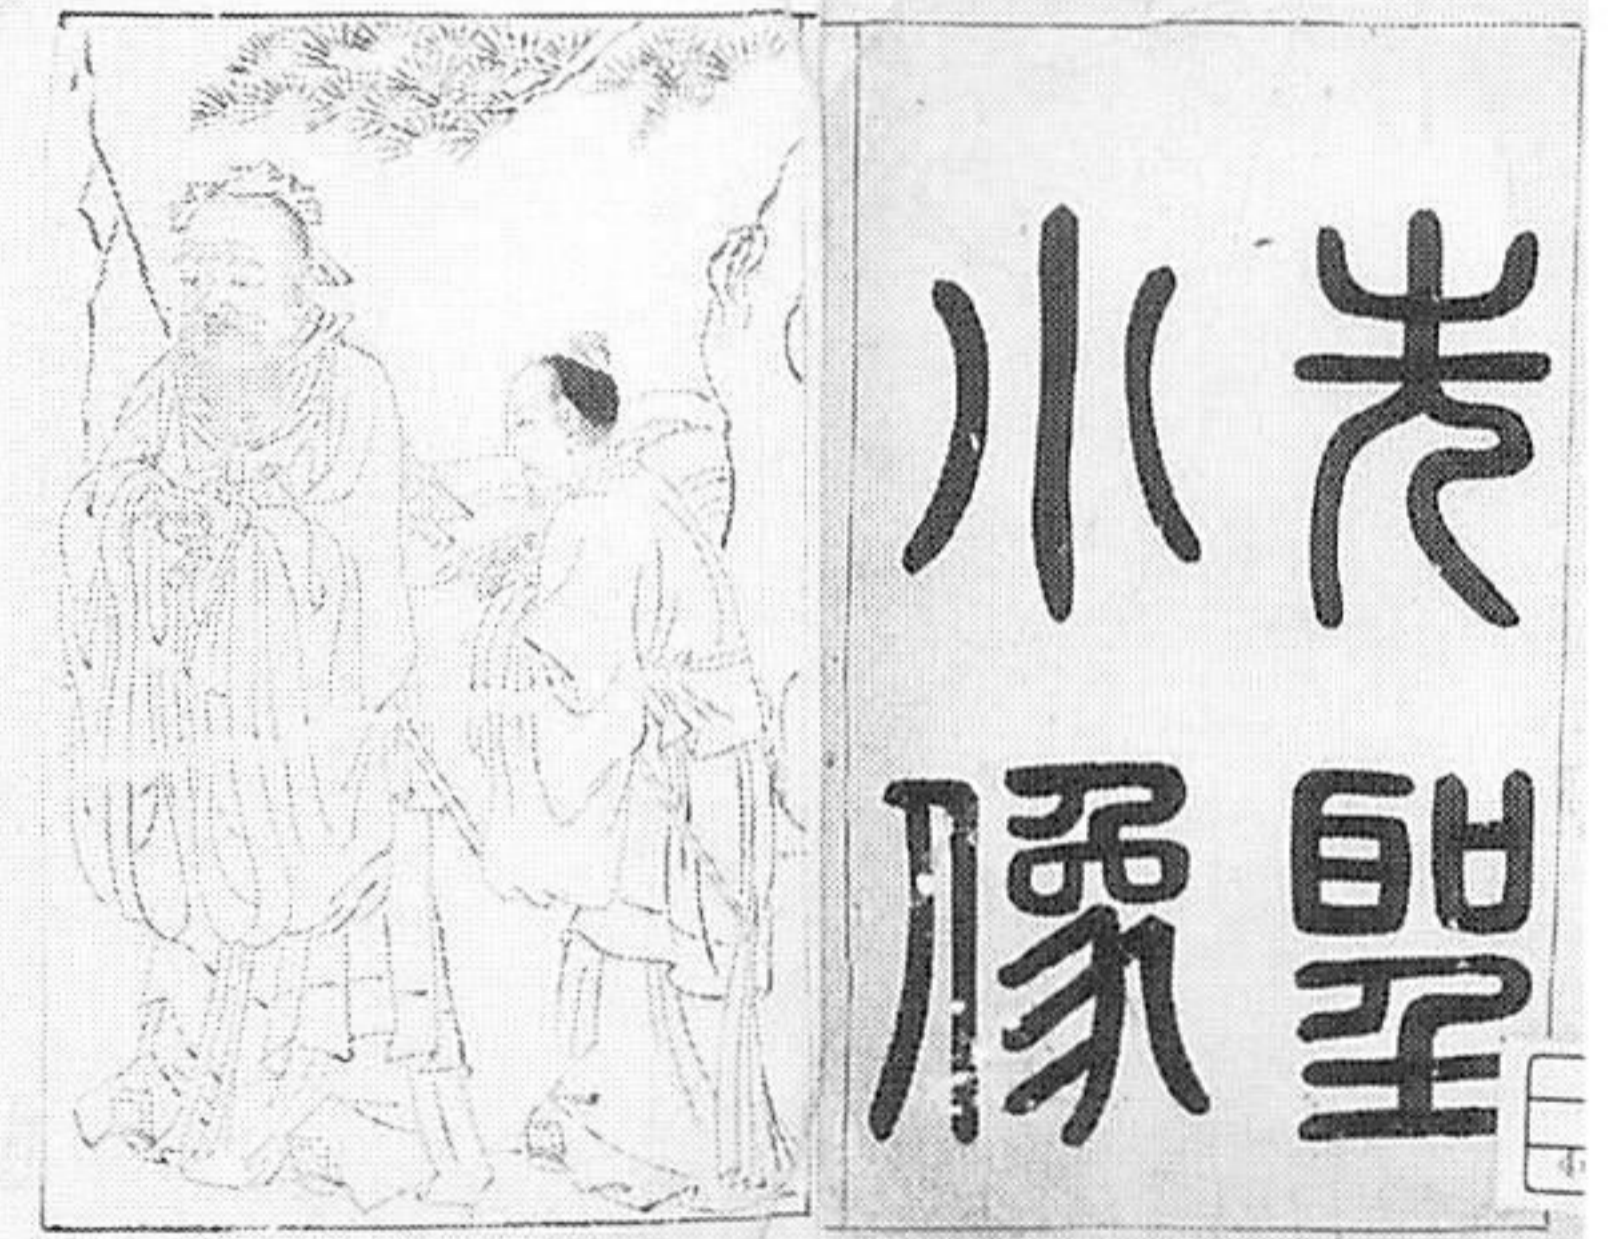 先聖
小像